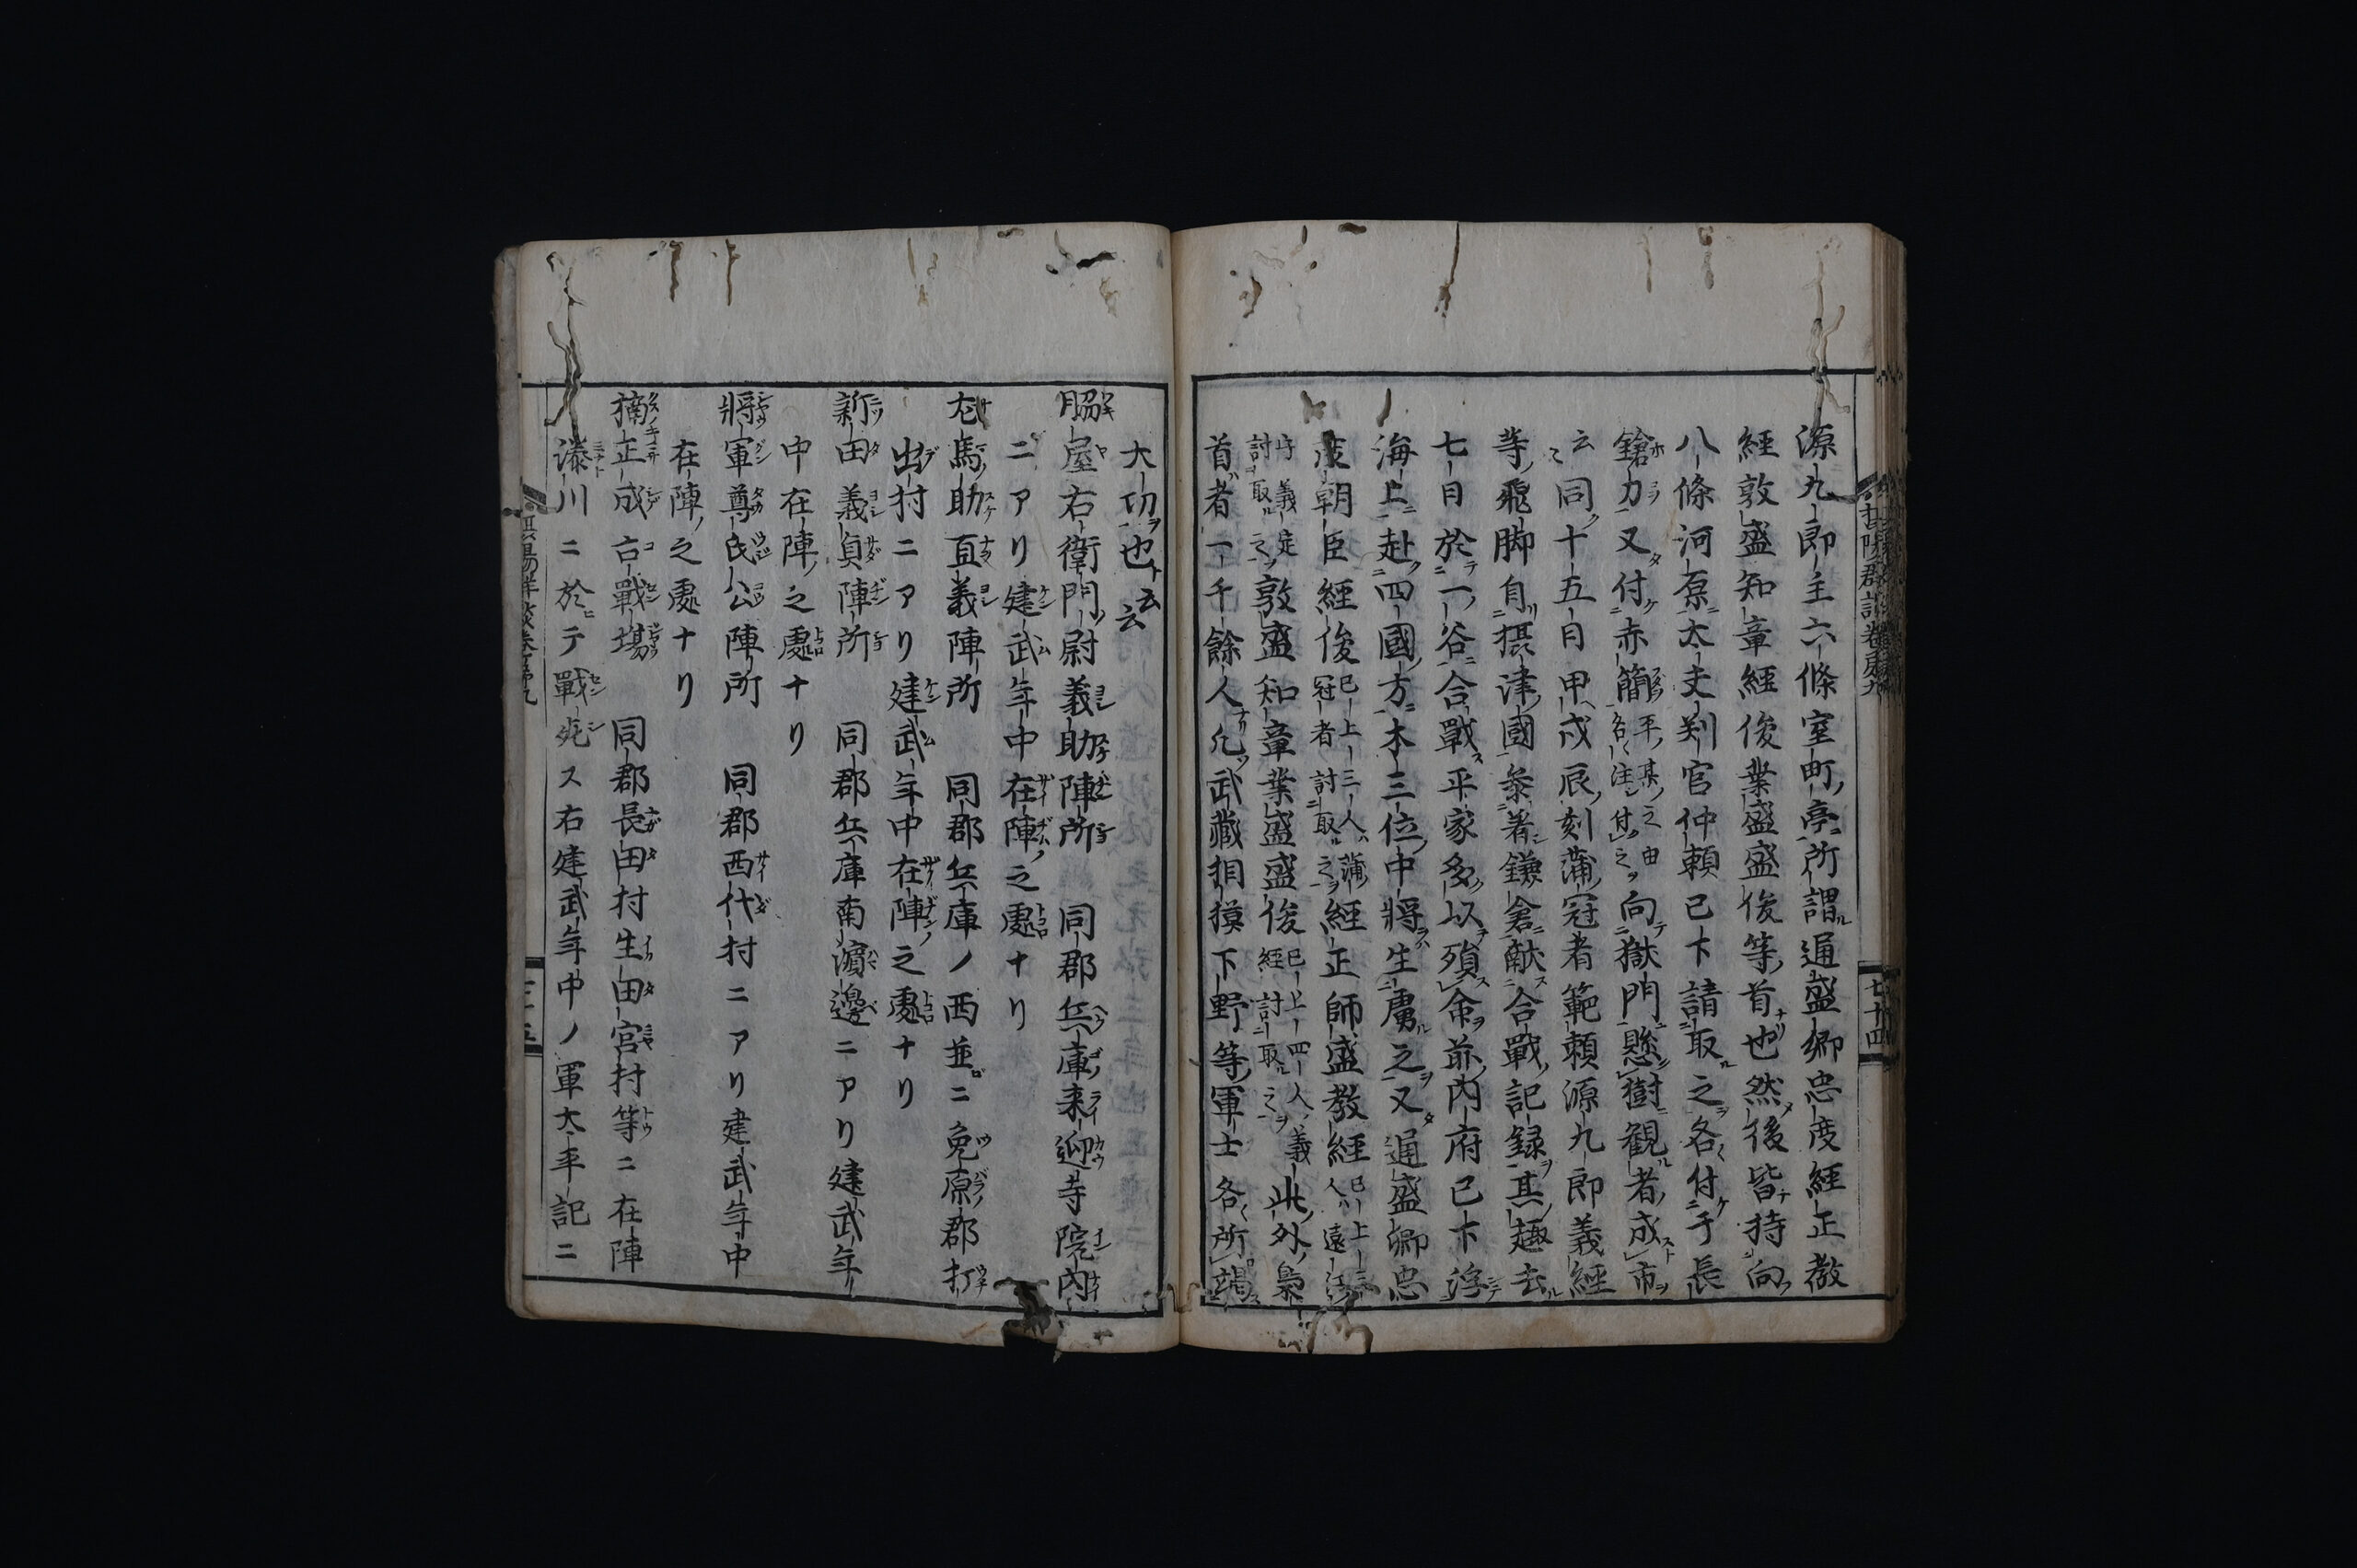 源九郎主六條室町亭所謂通盛卿忠度經正教
經敦盛知章經俊業盛盛俊等首也然後皆持向
八條河原大夫判官仲頼已下請取之各付于長
鎗刀又付赤簡平某之由各注付之向獄門懸樹観者成市
云々同十五日甲戌辰刻蒲冠者範頼源九郎義經
等飛脚自摂津國参著鎌倉献合戰記録其趣去
七日於一谷合戰平家多以殞命前内府已下浮
海上赴四國方本三位中將生虜之又通盛卿忠
度朝臣經俊已上三人蒲冠者討取之經正師盛教經已上三人遠江
守義定討取之敦盛知章業盛盛俊已上四人義經討取之此外梟
首者一千餘人凡武藏相摸下野等軍士各所竭
大功也云云
脇屋右衛門尉義助陣所 同郡兵庫来迎寺院内
ニアリ建武年中在陣之處ナリ
左馬助直義陣所 同郡兵庫ノ西並ニ兔原郡打
出村ニアリ建武年中在陣之處ナリ
新田義貞陣所 同郡兵庫南濵邊ニアリ建武年
中在陣之處ナリ
將軍尊氏公陣所 同郡西代村ニアリ建武年中
在陣之處ナリ
楠正成古戰場 同郡長田村生田宮村等ニ在陣
湊川ニ於テ戰死ス右建武年中ノ軍大平記ニ
七十四